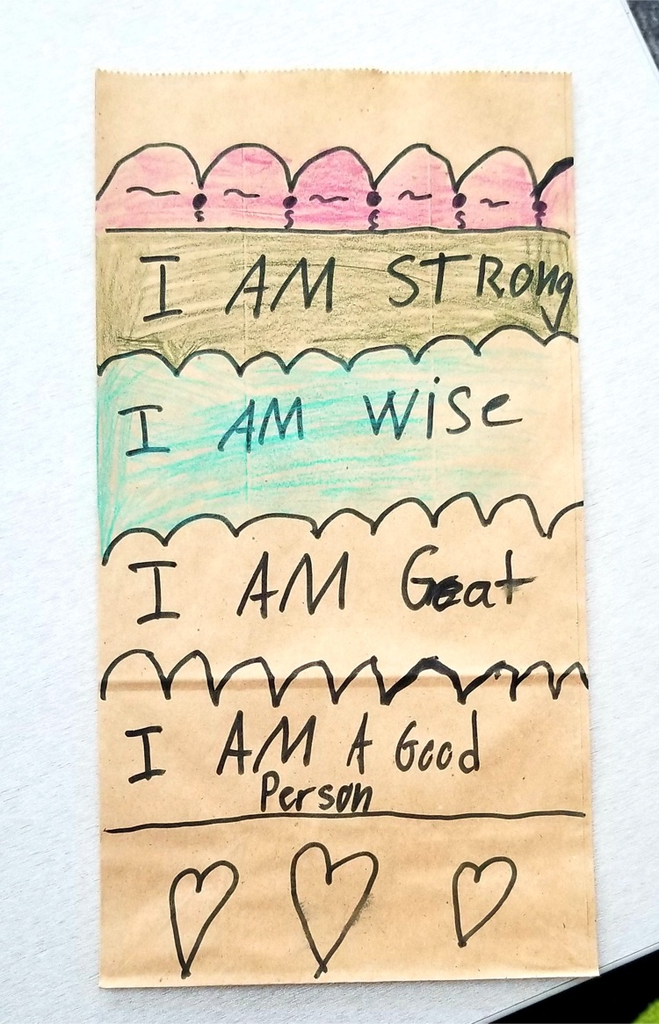 I AM STRONg
I AM WiSe
I AM Geat
I AM A Good
Person